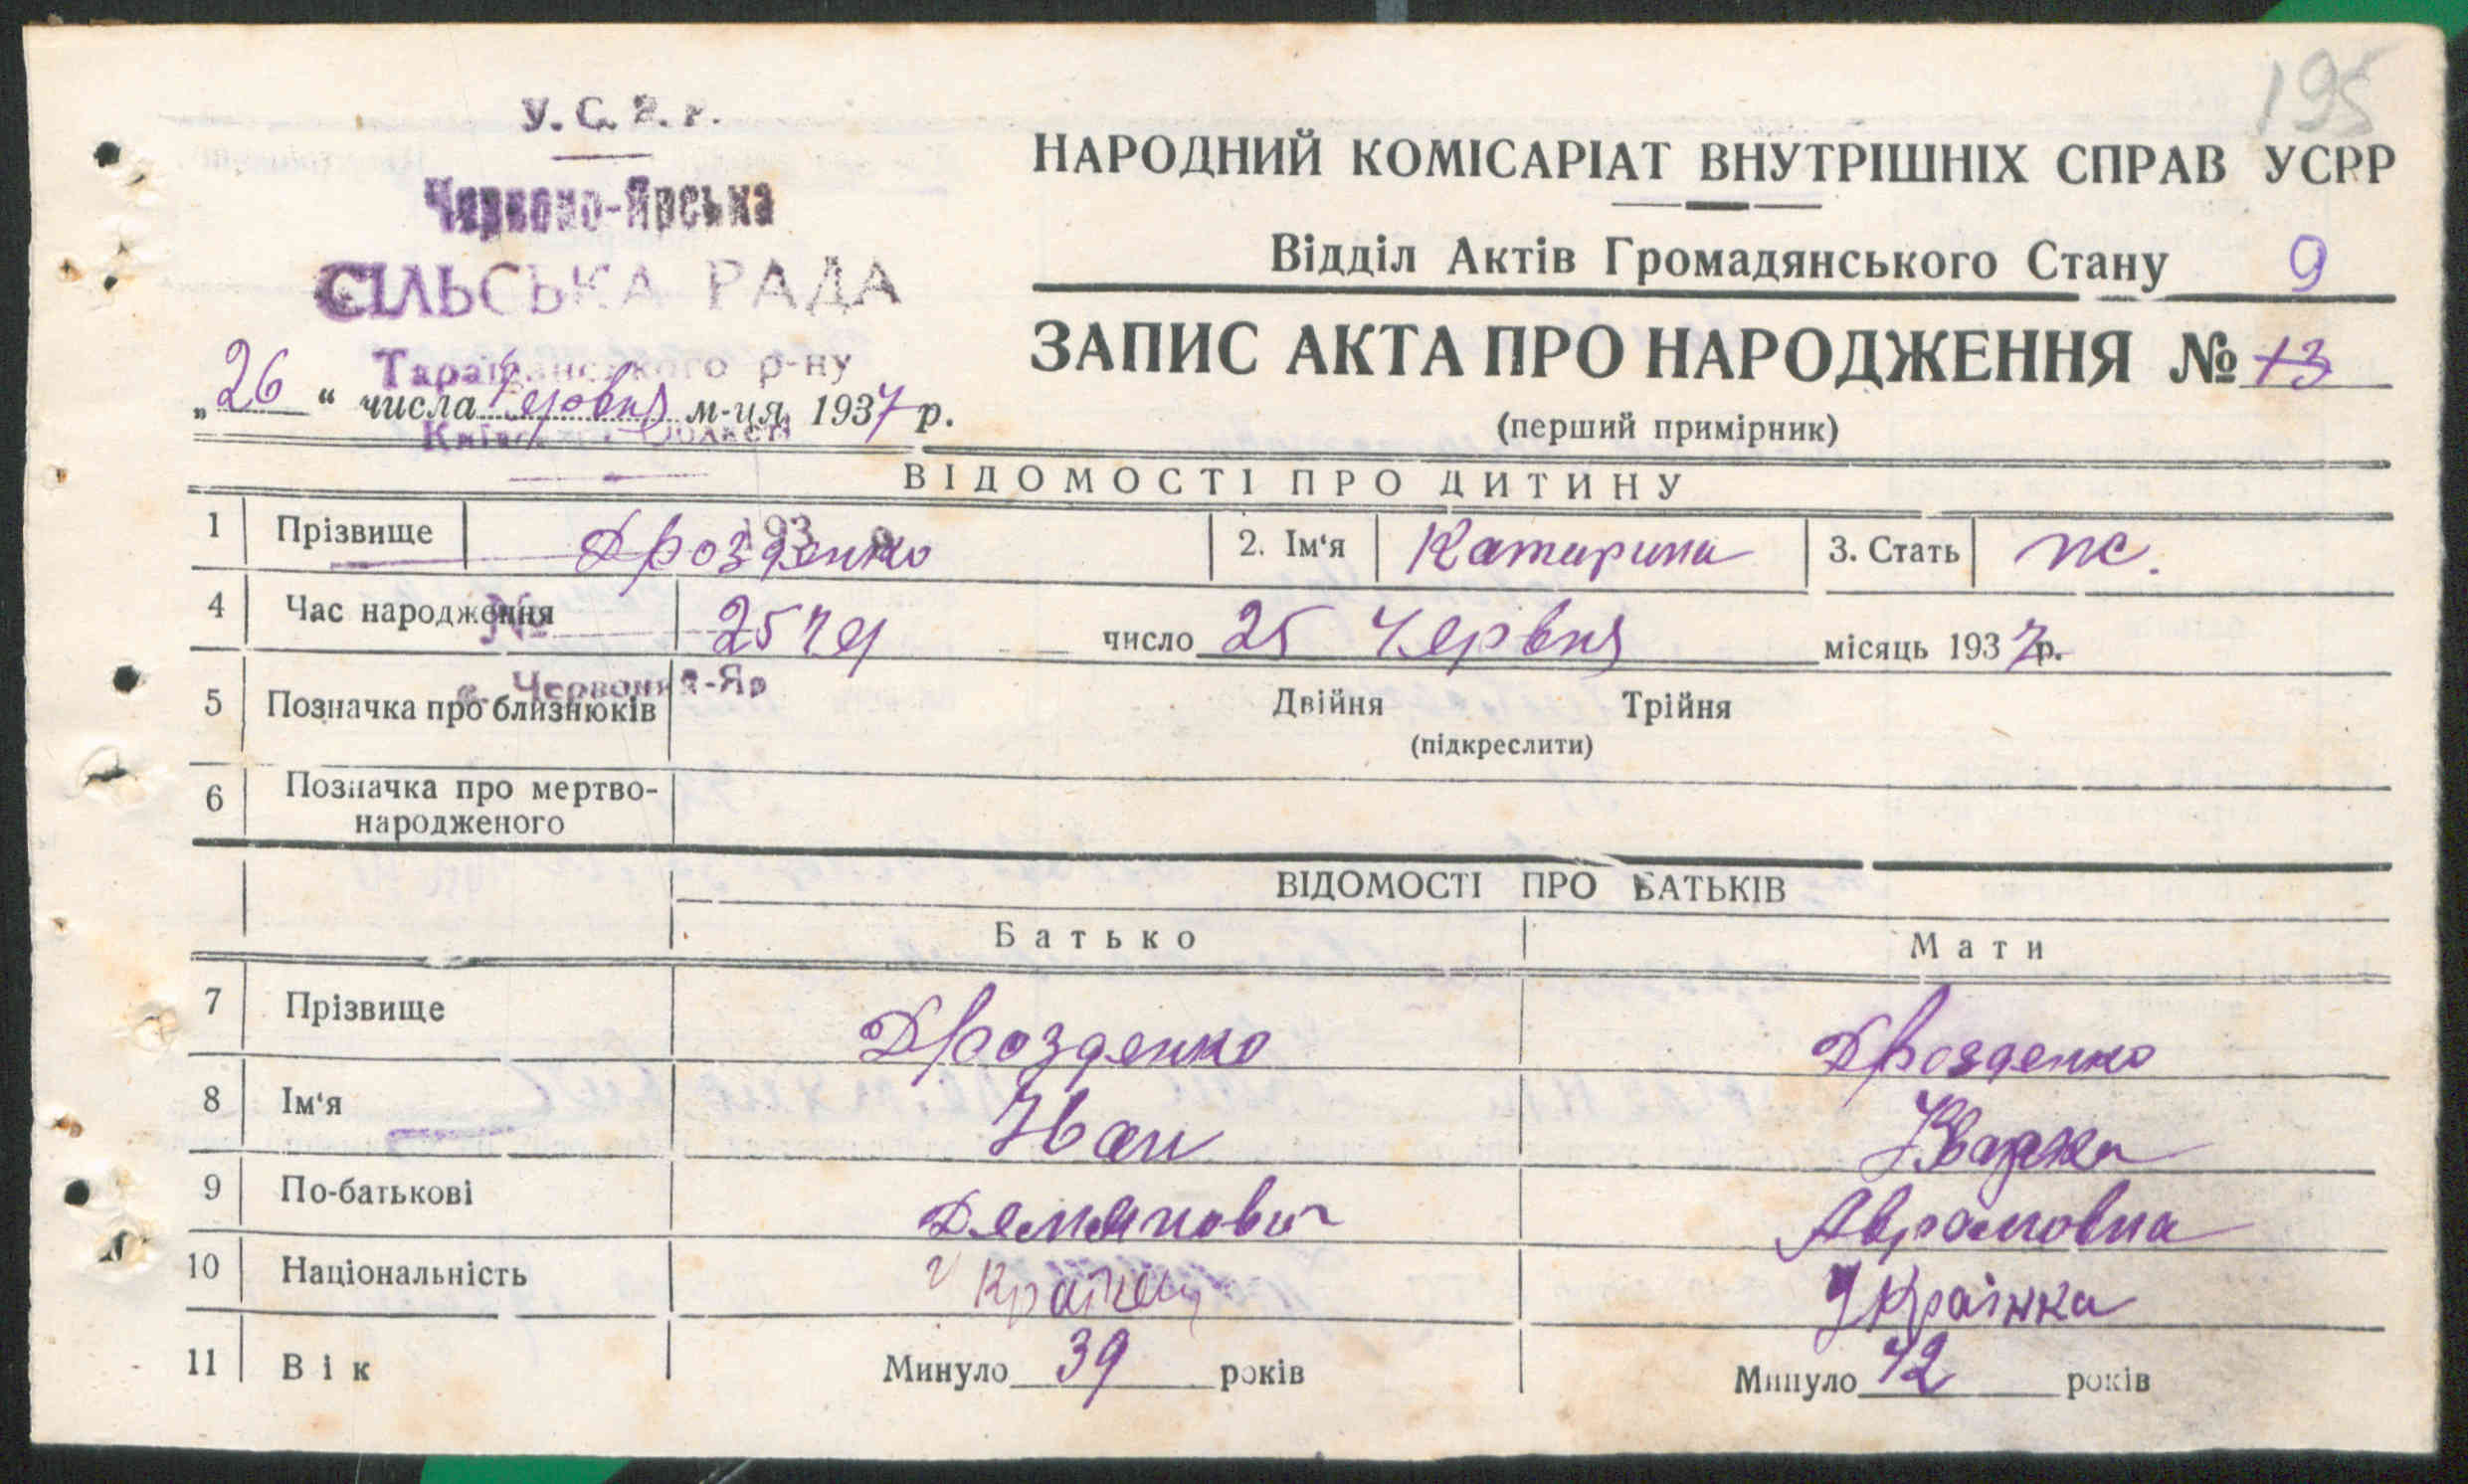 195
У.С.Р.Р.
Червоно-Ярська
СІЛЬСЬКА РАДА
Таращанського р-ну
Київської області
НАРОДНИЙ КОМІСАРІАТ ВНУТРІШНІХ СПРАВ УСРР
Відділ Актів Громадянського Стану 9
ЗАПИС АКТА ПРО НАРОДЖЕННЯ № 13
(перший примірник)
„26“ числа Червня м-ця 1937 р.
ВІДОМОСТІ ПРО ДИТИНУ
193 р.
1 Прізвище Дрозденко 2. Ім'я Катирина 3. Стать ж.
№
4 Час народження 25 чер число 25 Червня місяць 1937 р.
с. Червоний-Яр
5 Позначка про близнюків Двійня Трійня
(підкреслити)
6 Позначка про мертво-
народженого
ВІДОМОСТІ ПРО БАТЬКІВ
Батько Мати
7 Прізвище Дрозденко Дрозденко
8 Ім'я Іван
9 По-батькові Демянович Аврамовна
10 Національність Українка
11 Вік Минуло 39 років Минуло 42 років